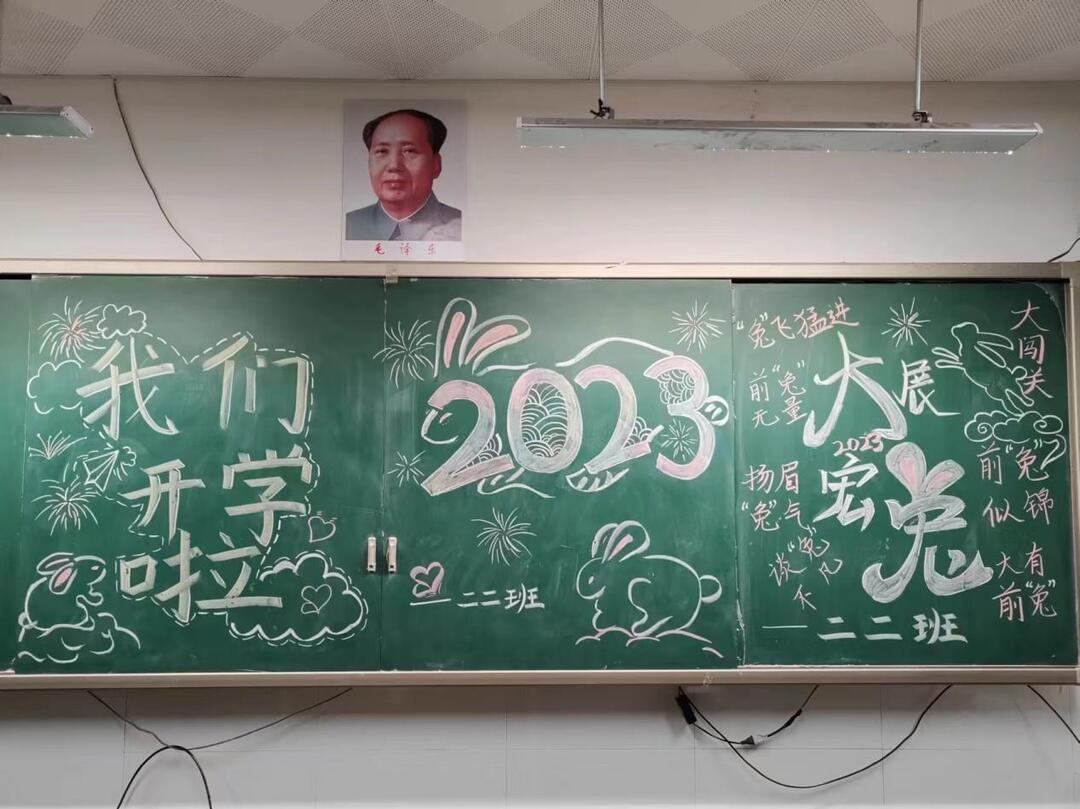 毛泽东
我们
开学
啦
2023
—二二班
"兔"飞猛进
前"兔"
无量
扬眉
"兔"气
谈"兔"
不凡
大展
2023
宏兔
—二二班
大闯关
前"兔"
似锦
大有
前"兔"